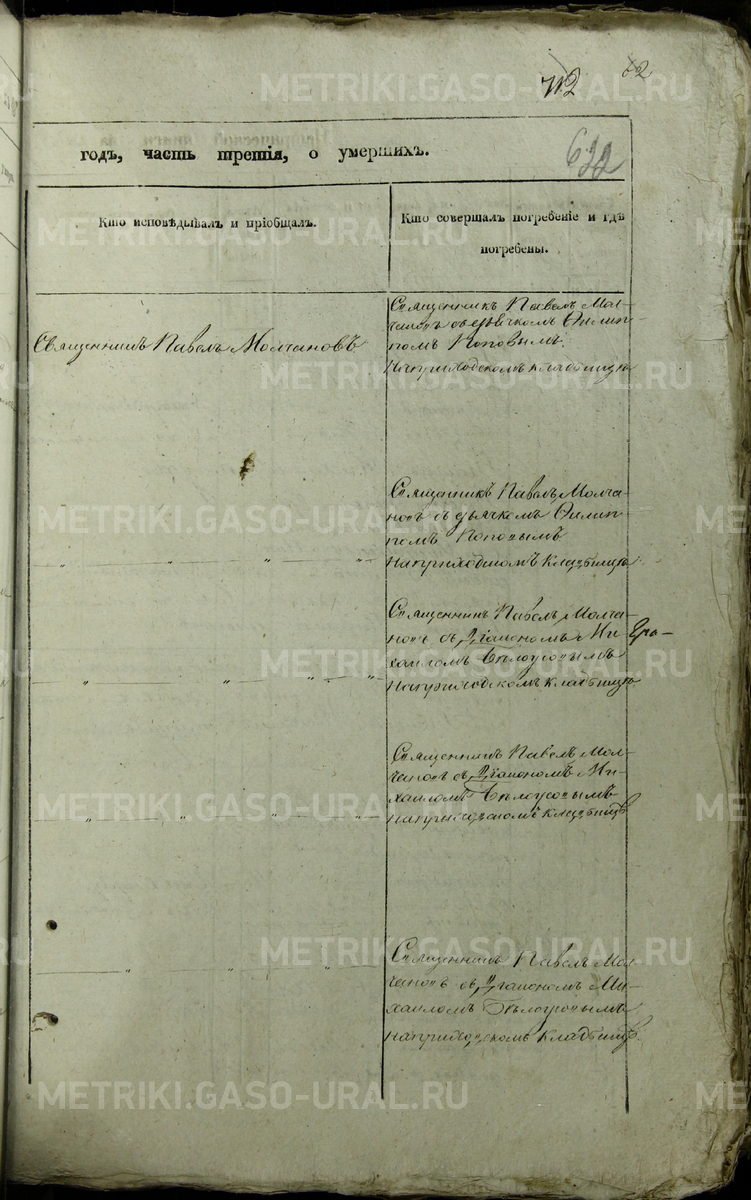 METRIKI.GASO-URAL.RU
712
62
годъ, часть третія, о умершихъ.
622
Кто исповѣдывалъ и пріобщалъ.
Кто совершалъ погребеніе и гдѣ
погребены.
Священникъ Павелъ Молчановъ
Священникъ Павелъ Мол-
чановъ съ дьячкомъ Филип-
помъ Поповымъ
на приходскомъ кладбищѣ
Священникъ Павелъ Молча-
новъ съ дьячкомъ Филип-
помъ Поповымъ
на приходскомъ кладбищѣ
Священникъ Павелъ Молча-
новъ съ Діакономъ Ми-
хаиломъ Бѣлоусовымъ
на приходскомъ кладбищѣ
Священникъ Павелъ Мол-
чановъ съ Діакономъ Ми-
хаиломъ Бѣлоусовымъ
на приходскомъ кладбищѣ
Священникъ Павелъ Мол-
чановъ съ Діакономъ Ми-
хаиломъ Бѣлоусовымъ
на приходскомъ кладбищѣ